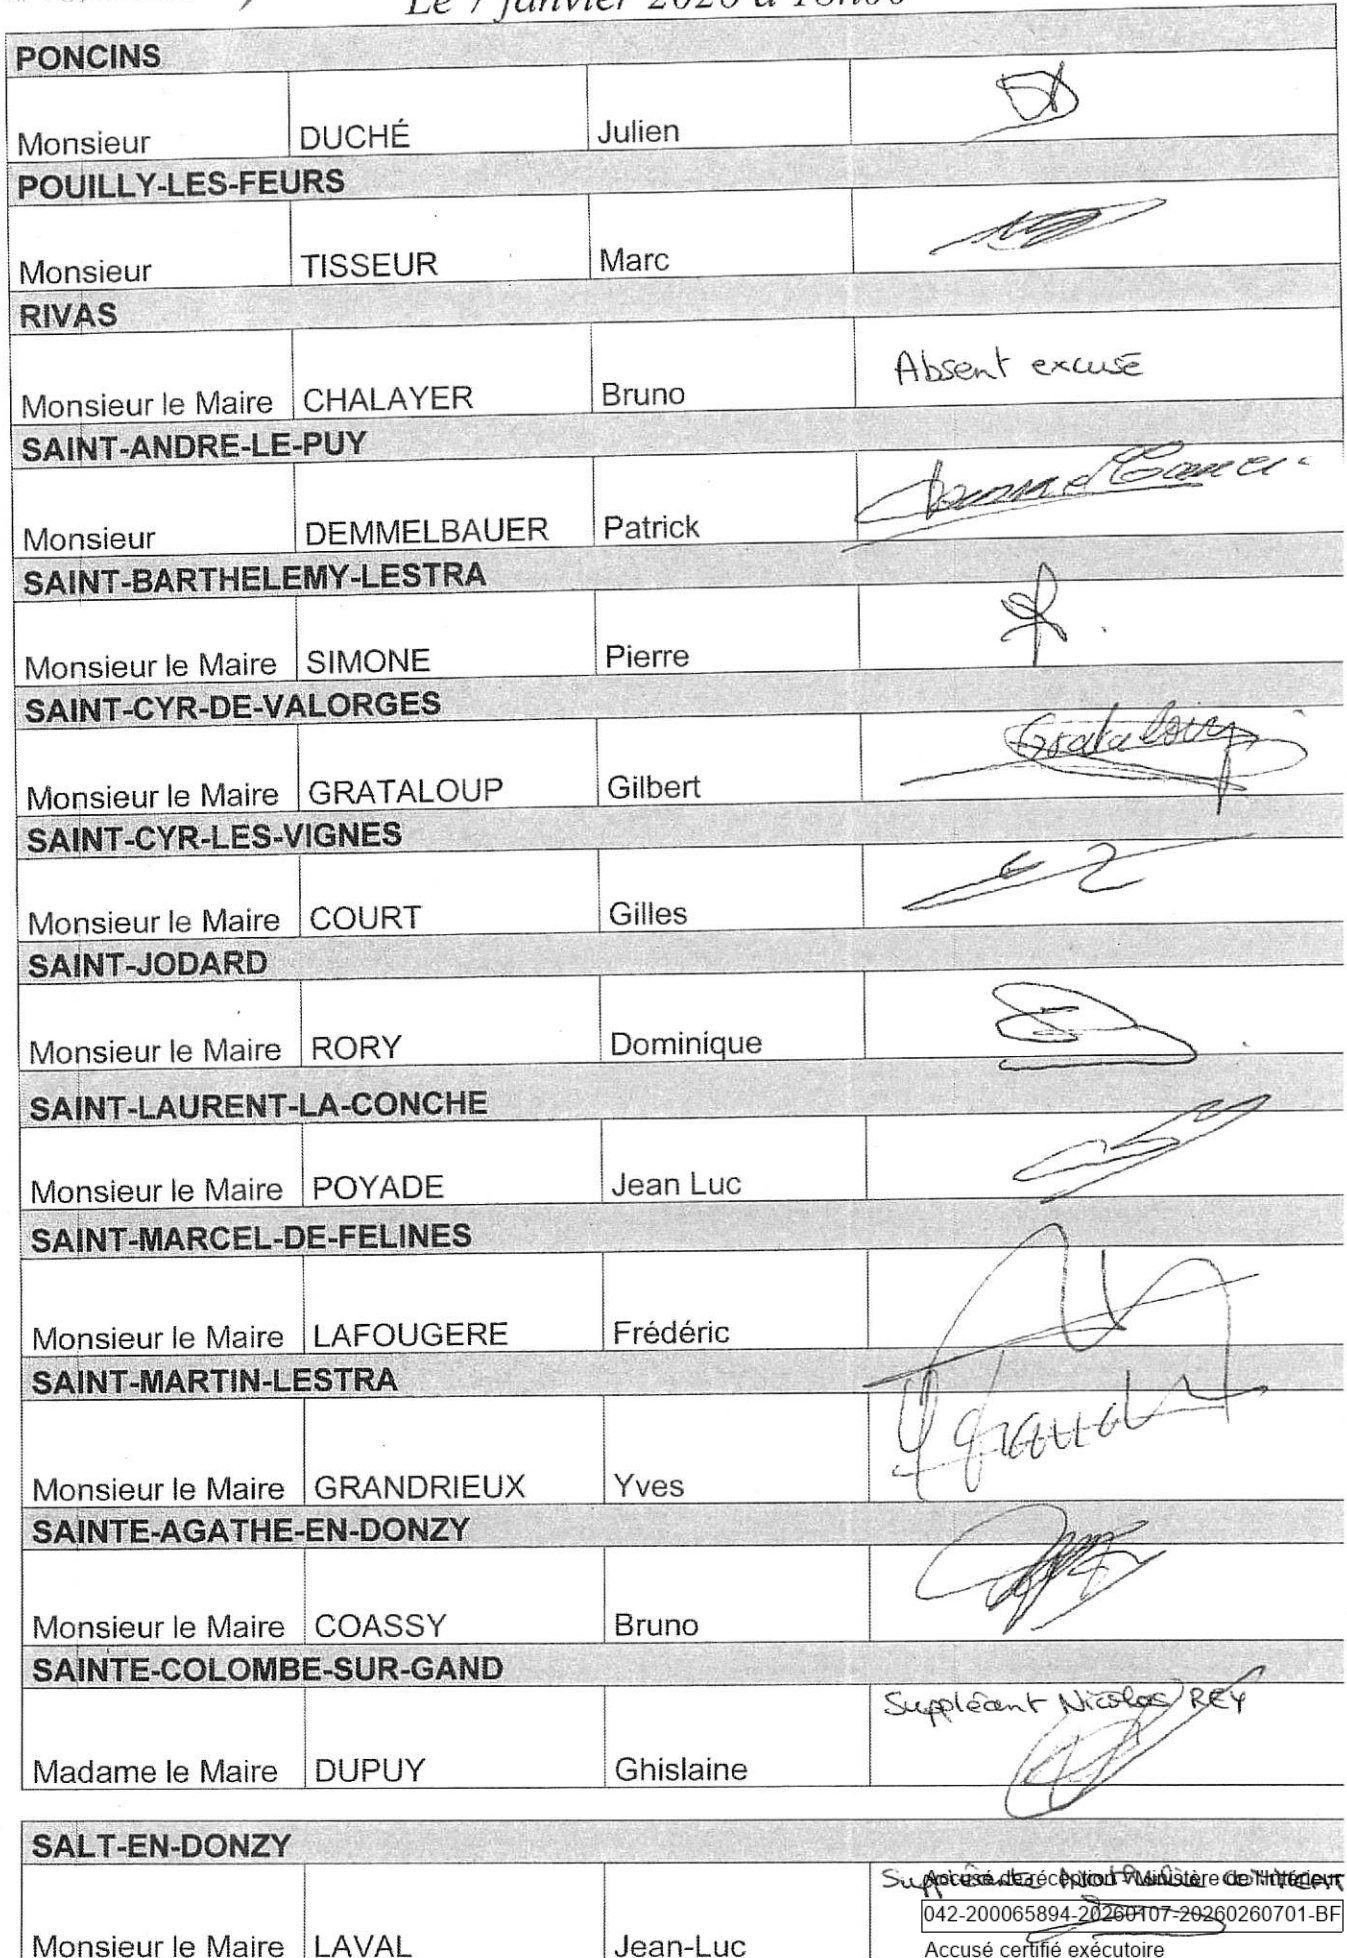 Le 7 janvier 2026 à 18h00
PONCINS
Monsieur DUCHÉ Julien
POUILLY-LES-FEURS
Monsieur TISSEUR Marc
RIVAS
Monsieur le Maire CHALAYER Bruno Absent excusé
SAINT-ANDRE-LE-PUY
Monsieur DEMMELBAUER Patrick
SAINT-BARTHELEMY-LESTRA
Monsieur le Maire SIMONE Pierre
SAINT-CYR-DE-VALORGES
Monsieur le Maire GRATALOUP Gilbert Grataloup
SAINT-CYR-LES-VIGNES
Monsieur le Maire COURT Gilles
SAINT-JODARD
Monsieur le Maire RORY Dominique
SAINT-LAURENT-LA-CONCHE
Monsieur le Maire POYADE Jean Luc
SAINT-MARCEL-DE-FELINES
Monsieur le Maire LAFOUGERE Frédéric
SAINT-MARTIN-LESTRA
Monsieur le Maire GRANDRIEUX Yves
SAINTE-AGATHE-EN-DONZY
Monsieur le Maire COASSY Bruno
SAINTE-COLOMBE-SUR-GAND
Suppléant Nicolas REY
Madame le Maire DUPUY Ghislaine
SALT-EN-DONZY
Suppléante
Accusé de réception - Ministère de l'Intérieur
042-200065894-20260107-20260260701-BF
Monsieur le Maire LAVAL Jean-Luc
Accusé certifié exécutoire